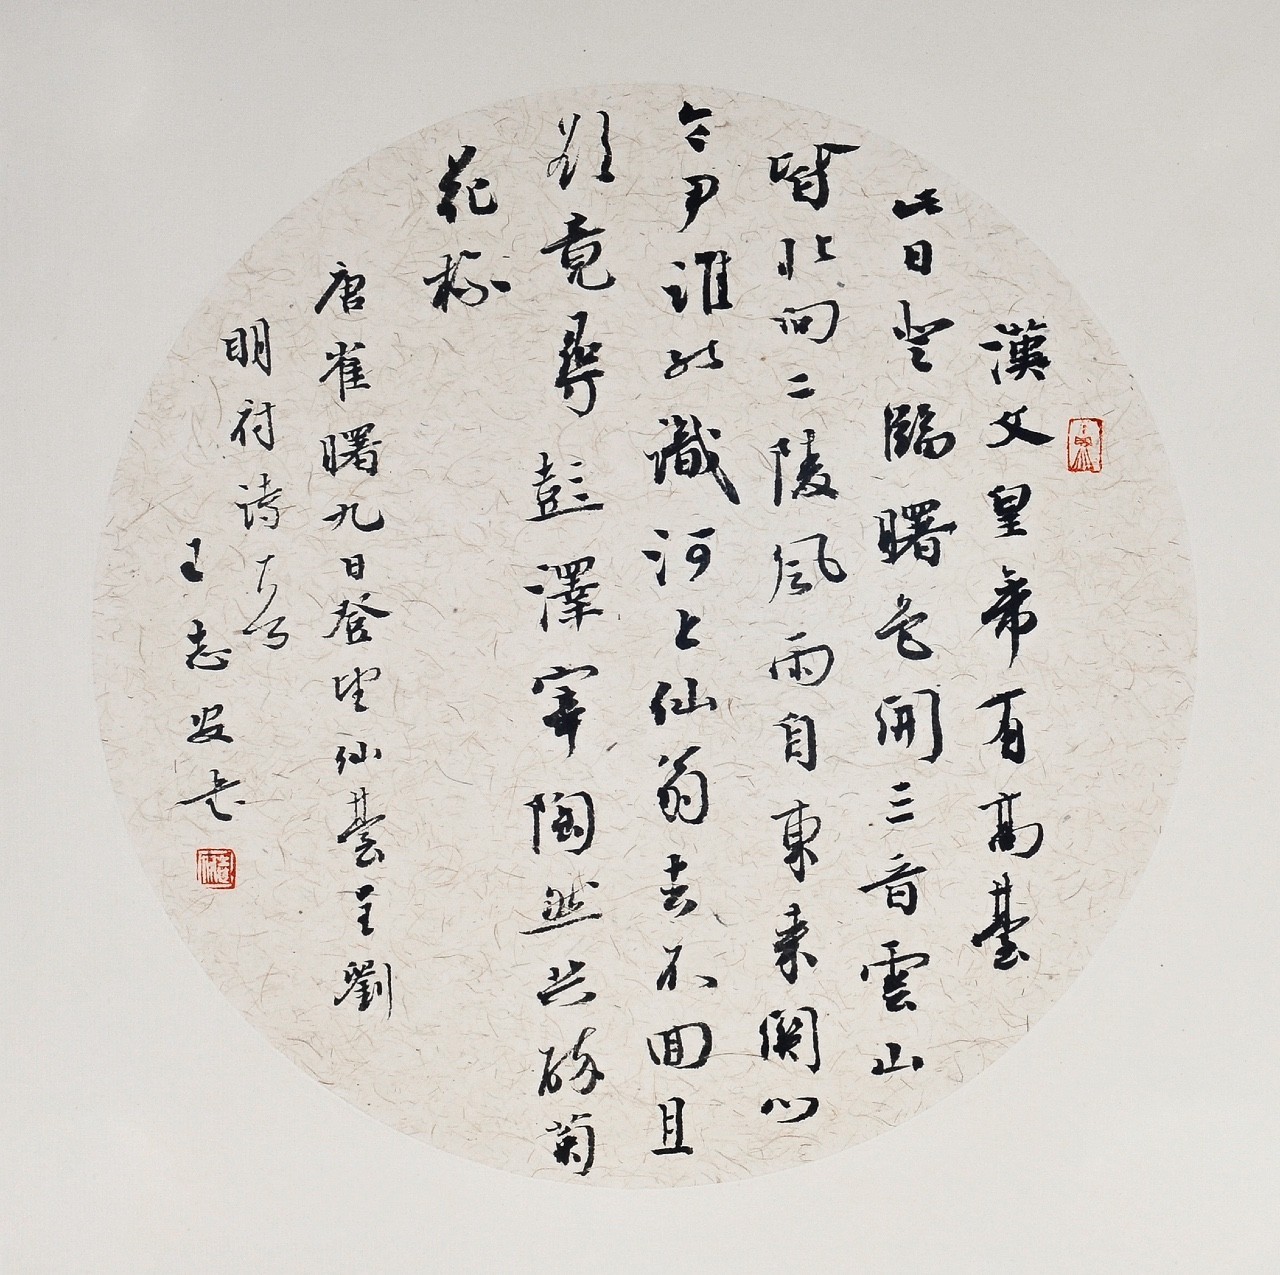 漢文皇帝有高臺
此日登臨曙色開三音雲山
皆北向二陵風雨自東来關門
令尹誰能識河上仙翁去不囬且
欲竟尋彭澤宰陶然共醉菊
花杯
唐崔曙九日登望仙臺呈劉
明府詩一首
王志安书